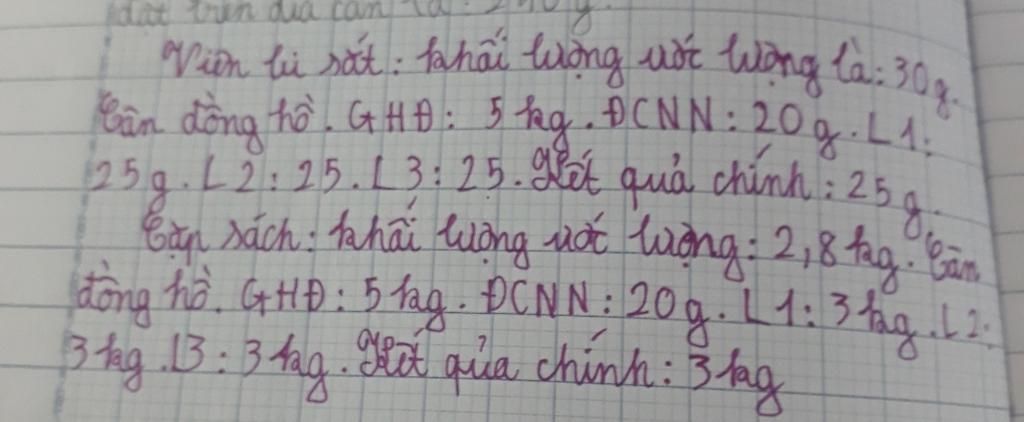 đặt trên đĩa cân là: 240 g.
Viên bi sắt: khối lượng ước lượng là: 30g.
Cân đồng hồ. GHĐ: 5 kg. ĐCNN: 20 g. L1:
25g. L2: 25. L3: 25. Kết quả chính: 25g.
Cặp sách: khối lượng ước lượng: 2,8 kg. Cân
đồng hồ. GHĐ: 5 kg. ĐCNN: 20 g. L1: 3 kg. L2:
3 kg. L3: 3 kg. Kết quả chính: 3 kg